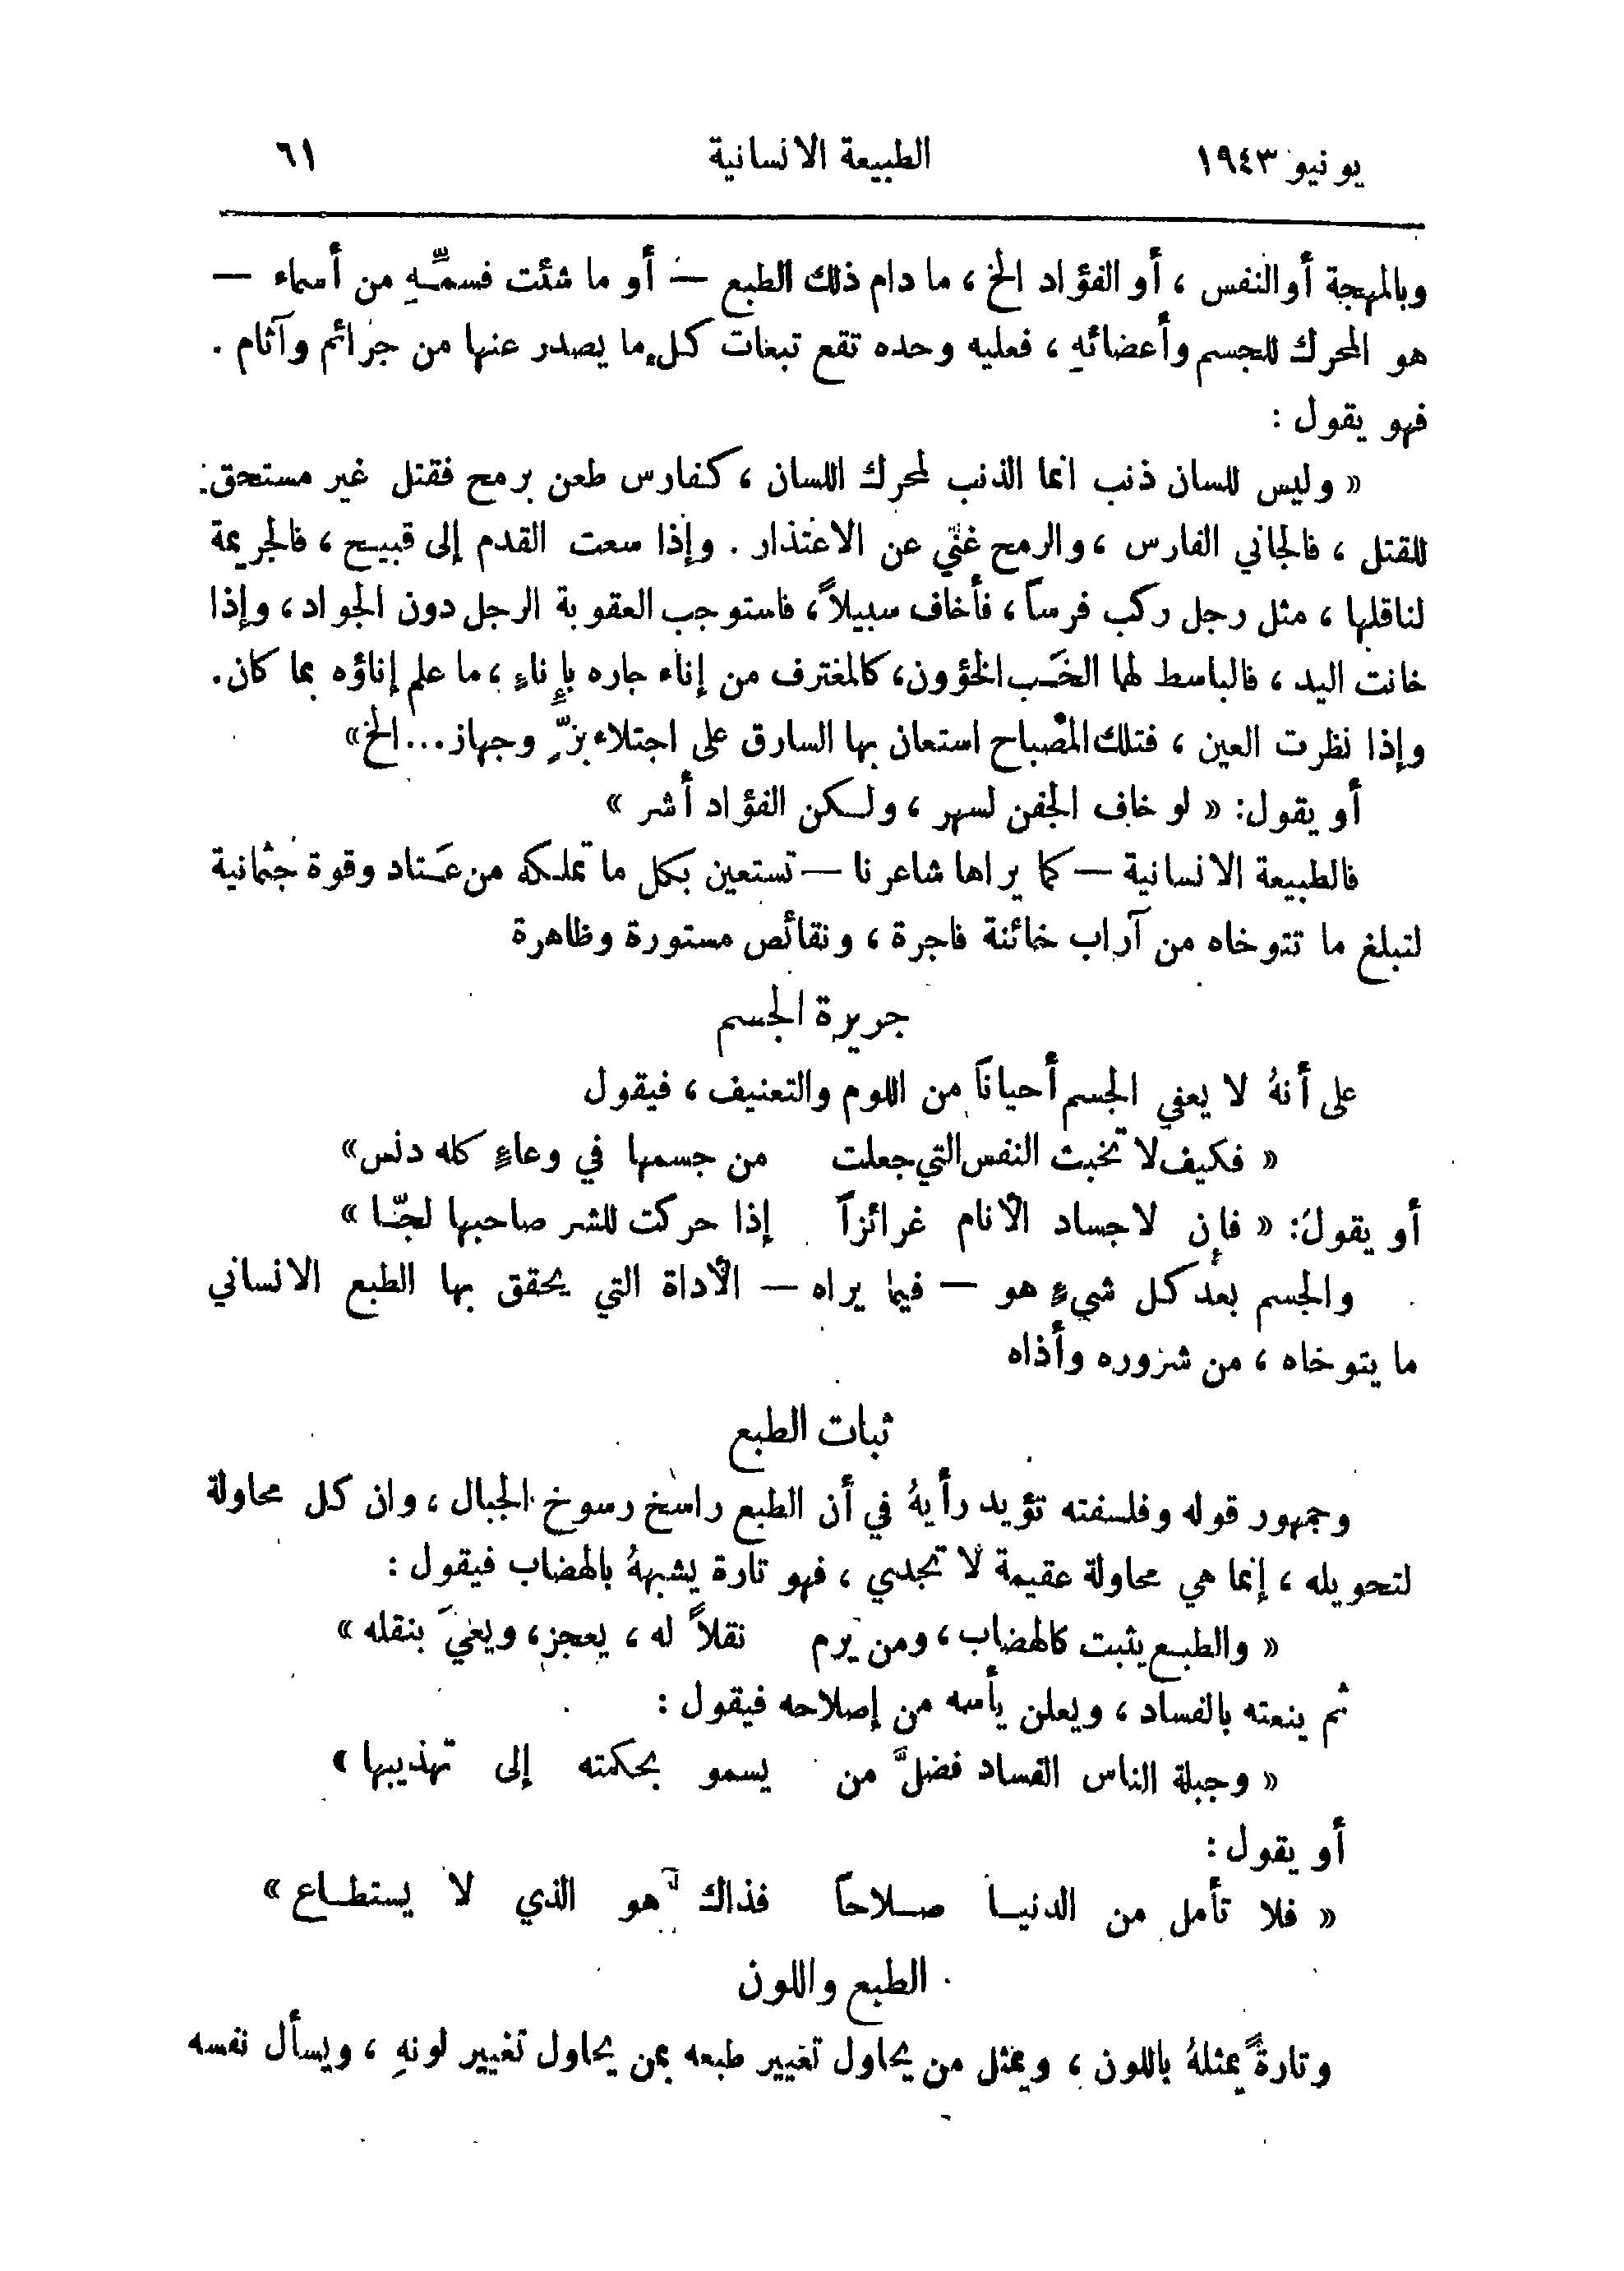 يونيو ١٩٤٣ الطبيعة الانسانية ٦١
وبالمهجة أو النفس ، أو الفؤاد الخ ، ما دام ذلك الطبع — أو ما شئت فسمِّهِ من أسماء —
هو المحرك للجسم وأعضائهِ ، فعليه وحده تقع تبعات كل ما يصدر عنها من جرائم وآثام .
فهو يقول :
« وليس للسان ذنب انما الذنب لمحرك اللسان ، كفارس طعن برمح فقتل غير مستحق
للقتل ، فالجاني الفارس ، والرمح غنيّ عن الاعتذار . وإذا سعت القدم إلى قبيح ، فالجريمة
لناقلها ، مثل رجل ركب فرساً ، فأخاف سبيلاً ، فاستوجب العقوبة الرجل دون الجواد ، وإذا
خانت اليد ، فالباسط لها الخَب الخؤون ، كالمغترف من إناء جاره بإناءٍ ، ما علم إناؤه بما كان .
وإذا نظرت العين ، فتلك المصباح استعان بها السارق على اجتلاء بزّ وجهاز ... الخ »
أو يقول : « لو خاف الجفن لسهر ، ولكن الفؤاد أشر »
فالطبيعة الانسانية — كما يراها شاعرنا — تستعين بكل ما تملكه من عَتاد وقوة جثمانية
لتبلغ ما تتوخاه من آراب خائنة فاجرة ، ونقائص مستورة وظاهرة
جريرة الجسم
على أنهُ لا يعفي الجسم أحياناً من اللوم والتعنيف ، فيقول
« فكيف لا تخبث النفس التي جعلت من جسمها في وعاءٍ كله دنس »
أو يقول : « فإن لاجساد الأنام غرائزاً إذا حركت للشر صاحبها لجّا »
والجسم بعد كل شيءٍ هو — فيما يراه — الأداة التي يحقق بها الطبع الانساني
ما يتوخاه ، من شروره وأذاه
ثبات الطبع
وجمهور قوله وفلسفته تؤيد رأيهُ في أن الطبع راسخ رسوخ الجبال ، وان كل محاولة
لتحويله ، إنما هي محاولة عقيمة لا تجدي ، فهو تارة يشبههُ بالهضاب فيقول :
« والطبع يثبت كالهضاب ، ومن يرم نقلاً له ، يعجز ، ويعيَ بنقله »
ثم ينعته بالفساد ، ويعلن يأسه من إصلاحه فيقول :
« وجبلة الناس الفساد فضلَّ من يسمو بحكمته إلى تهذيبها »
أو يقول :
« فلا تأمل من الدنيا صلاحاً فذاك هو الذي لا يستطاع »
الطبع واللون
وتارةً يمثلهُ باللون ، ويمثل من يحاول تغيير طبعه بمن يحاول تغيير لونهِ ، ويسأل نفسه